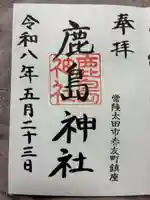 奉拝
常陸太田市赤友町鎮座
鹿島神社
鹿島神社
令和八年五月二十三日